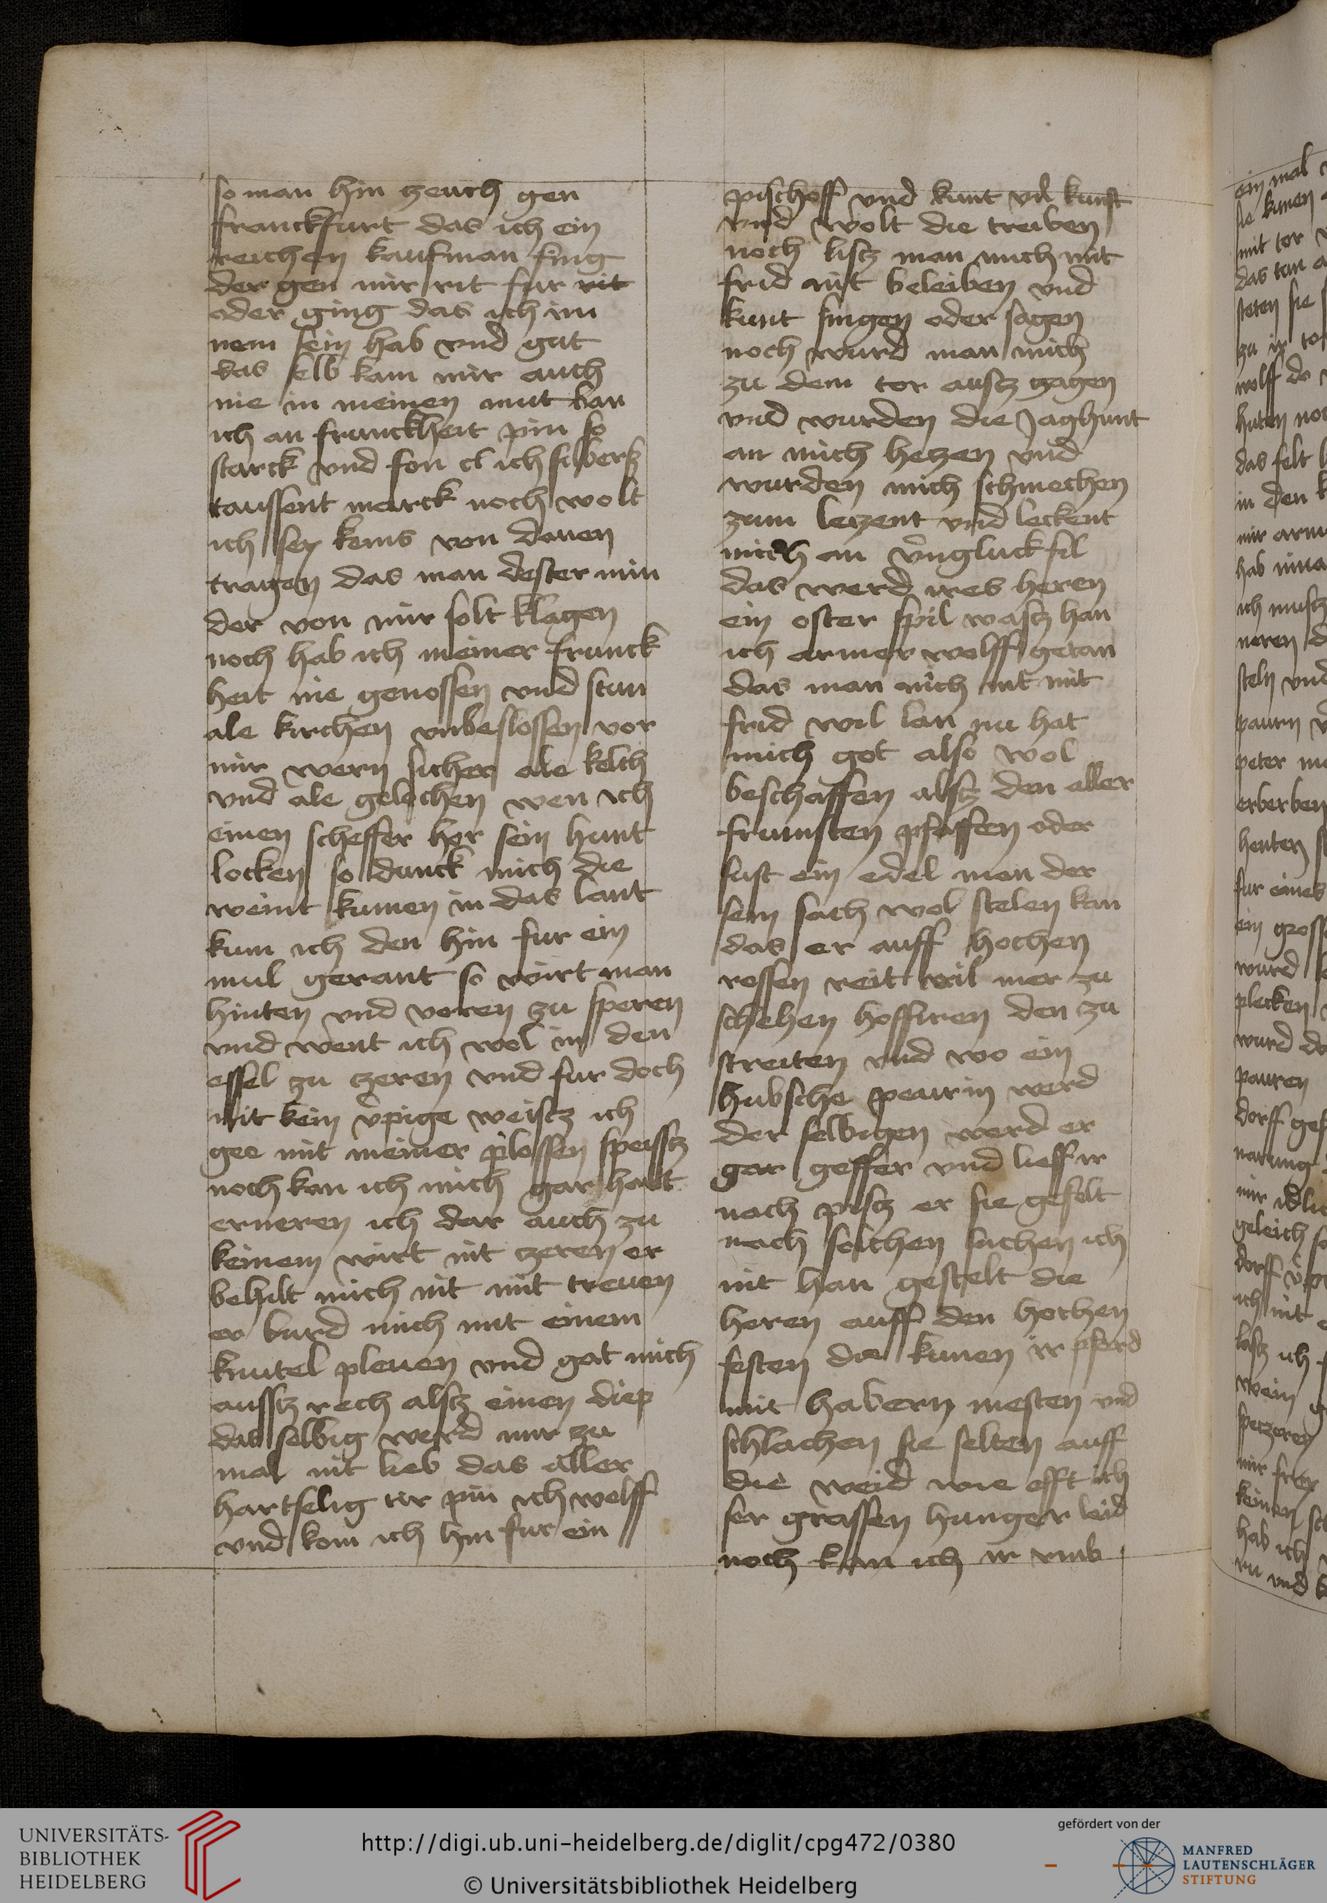 so man hin zeuch gen
franckfurt das ich ein
reichen kaufman fing
der gen mir rit fur rit
oder ging das ich im
nem sein hab vnd gut
das selb kam mir auch
nie in meinen mut ban
ich an franckheit pin so
starck vnd fon cl ich silbersz
taussent marck noch wolt
ich sey keins von danen
tragen das man dester min
der von mir solt klagen
noch hab ich meiner franck
heit nie genossen vnd stan
ale kirchen vnbeslossen vor
mir wern sicher ale kelch
vnd ale gelochen wen ich
einen scheffer hor sein hunt
locken so dunck mich die
weint kumen in das lant
kum ich den hin fur ein
mul gerant so wirt man
hinten vnd voren zu speren
vnd went ich wol in den
essel zu czeren vnd fur doch
nit kein vpige weisz ich
gee mit meiner plossen speissz
noch kan ich mich gar hart
erneren ich dar auch zu
keinem wirt nit czeren er
behilt mich nit mit treuen
er burd mich mit einem
knutel pleuen vnd gat mich
aussz rech alsz einen diep
das selbig werd mir zu
mal nit lieb das aller
hartselig tir pin ich wolff
vnd kom ich hin fur ein
pischoff vnd kunt vil kunst
vnd wolt die treiben
noch lisz man mich mit
frid nit beleiben vnd
kunt singen oder sagen
noch wurd man mich
zu dem tor aussz gagen
vnd wurden die Jaghunt
an mich heczen vnd
wurden mich schmechen
zum leczent vnd leckent
mich an vngluck fil
das werd ires heren
ein oster spil wasz han
ich armer wolff getan
das man mich nit mit
frid wil lan nu hat
mich got also wol
beschaffen alsz den aller
frumsten pfaffen oder
sust ein edel man der
sein sach wol stelen kan
das er auff hochen
rossen reit wil mer zu
schehen hoffiren den zu
streiten vnd wo ein
hubsche peurin werd
der selbigen werd er
gar geffer vnd lieff ir
nach pisz er sie gefelt
nach solchen sachen ich
nit han gestelt die
heren auff den hochen
festen die kunen ir pferd
mit habern mesten vnd
schlachen sie selten auff
die weid wie offt ich
ser grossen hunger leid
noch kan ich ir vmb
UNIVERSITÄTS-
BIBLIOTHEK
HEIDELBERG
http://digi.ub.uni-heidelberg.de/diglit/cpg472/0380
© Universitätsbibliothek Heidelberg
gefördert von der
MANFRED
LAUTENSCHLÄGER
STIFTUNG